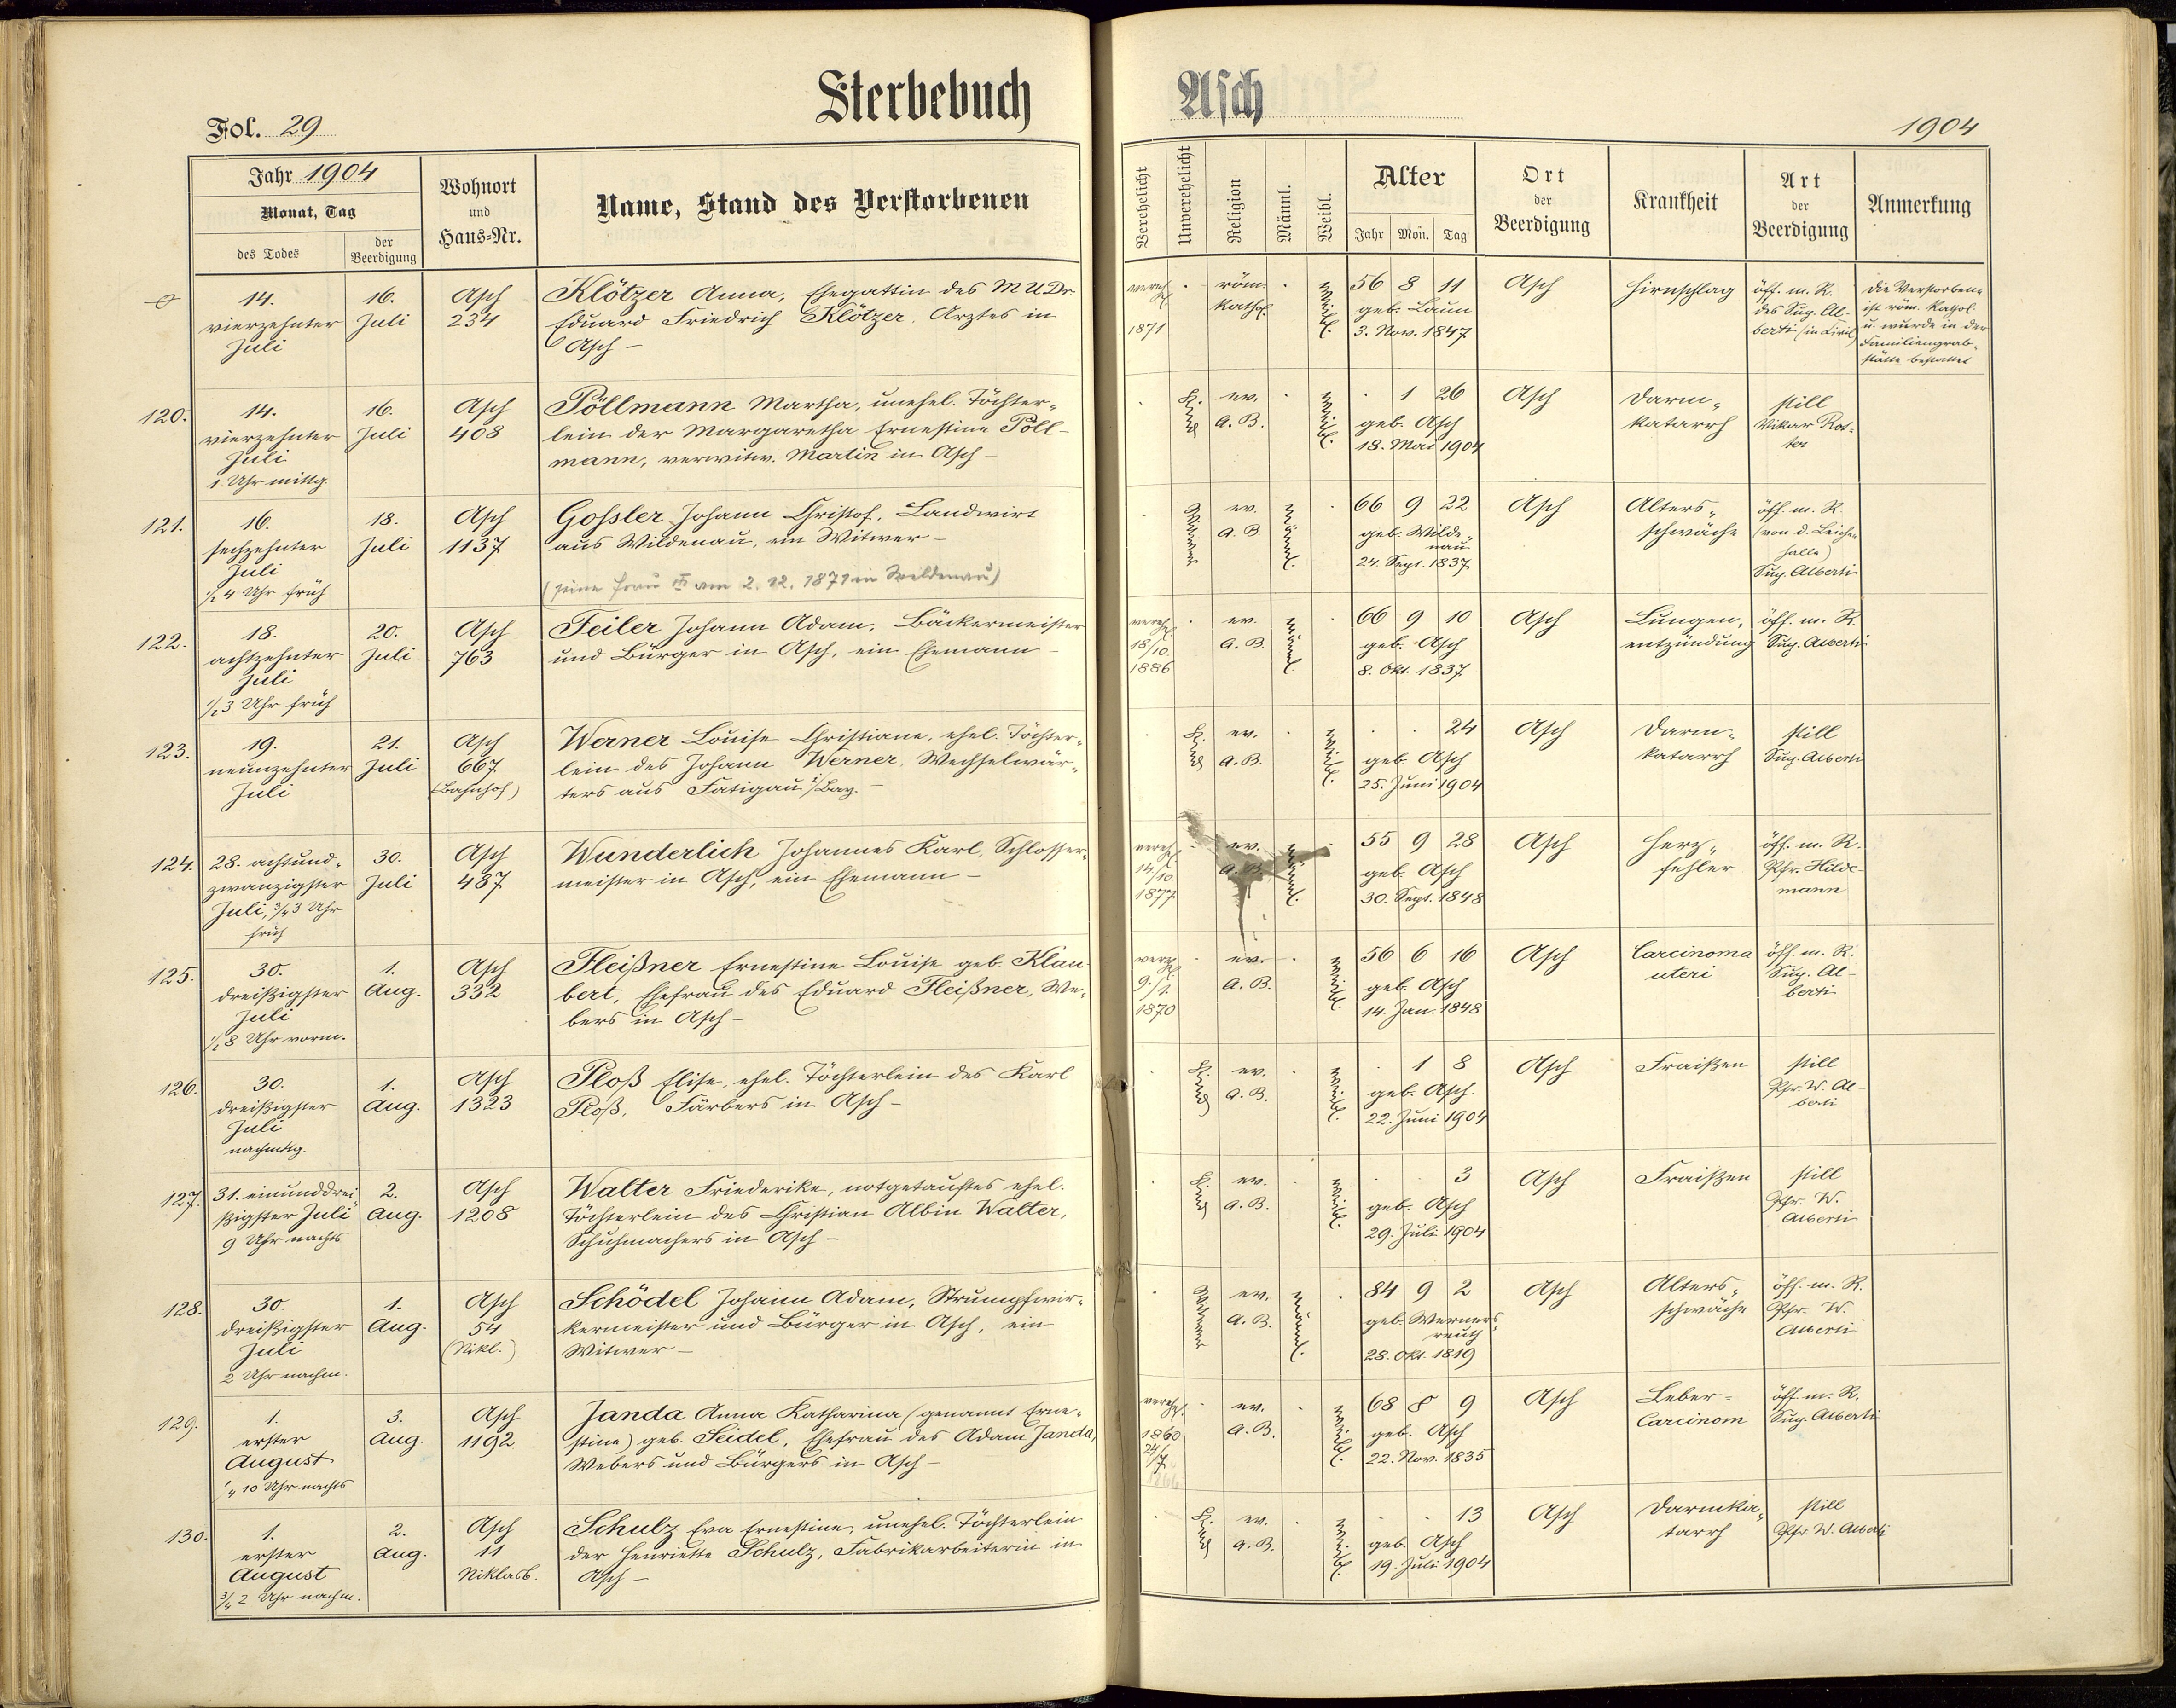 Sterbebuch Asch
Fol. 29
1904
Jahr 1904
Monat, Tag
des Todes
der Beerdigung
Wohnort
und
Haus=Nr.
Name, Stand des Verstorbenen
Verehelicht
Unverehelicht
Religion
Männl.
Weibl.
Alter
Jahr Mon. Tag
Ort
der
Beerdigung
Krankheit
Art
der
Beerdigung
Anmerkung
14.
vierzehnter
Juli
16.
Juli
Asch
234
Klötzer Anna, Ehegattin des MUDr.
Eduard Friedrich Klötzer, Arztes in
Asch –
vereh.
1871
röm.
kathol.
weibl.
56 8 11
geb. Laun
3. Nov. 1847
Asch
Hirnschlag
öff. m. R.
des Sup. Al-
berti (in Civil)
Die Verstorbene
ist röm. kathol.
u. wurde in der
Familiengrab-
stätte bestattet
120.
14.
vierzehnter
Juli
1 Uhr mittg.
16.
Juli
Asch
408
Pöllmann Martha, unehel. Töchter-
lein der Margaretha Ernestine Pöll-
mann, verwitw. Martin in Asch –
Kind
ev.
A. B.
weibl.
1 26
geb. Asch
18. Mai 1904
Asch
Darm-
katarrh
still
Vikar
121.
16.
sechzehnter
Juli
½ 4 Uhr früh
18.
Juli
Asch
1137
Goßler Johann Christof, Landwirt
aus Wildenau, ein Witwer –
(seine Frau am 2. 12. 1871 in Wildenau)
Witwer
ev.
A. B.
männl.
66 9 22
geb. Wilde-
nau
24. Sept. 1837
Asch
Alters-
schwäche
öff. m. R.
(von d. Leichen
halle)
Sup. Alberti
122.
18.
achtzehnter
Juli
½ 3 Uhr früh
20.
Juli
Asch
763
Feiler Johann Adam, Bäckermeister
und Bürger in Asch, ein Ehemann –
verehl.
18/10.
1886
ev.
A. B.
männl.
66 9 10
geb. Asch
8. Okt. 1837
Asch
Lungen-
entzündung
öff. m. R.
Sup. Alberti
123.
19.
neunzehnter
Juli
21.
Juli
Asch
667
(Bahnhof)
Werner Louise Christiane, ehel. Töchter-
lein des Johann Werner, Wechselwär-
ters aus Fatigau i/Bay. –
Kind
ev.
A. B.
weibl.
24
geb. Asch
25. Juni 1904
Asch
Darm-
katarrh
still
Sup. Alberti
124.
28. achtund-
zwanzigster
Juli, ¾ 3 Uhr
früh
30.
Juli
Asch
487
Wunderlich Johannes Karl, Schlosser-
meister in Asch, ein Ehemann –
verehl.
14/10.
1877
ev.
A. B.
männl.
55 9 28
geb. Asch
30. Sept. 1848
Asch
Herz-
fehler
öff. m. R.
Pfr. Hilde-
mann
125.
30.
dreißigster
Juli
½ 8 Uhr vorm.
1.
Aug.
Asch
332
Fleißner Ernestine Louise geb. Klau-
bert, Ehefrau des Eduard Fleißner, We-
bers in Asch –
verehl.
1870
ev.
A. B.
weibl.
56 6 16
geb. Asch
14. Jan. 1848
Asch
Carcinoma
uteri
öff. m. R.
Sup. Al-
berti
126.
30.
dreißigster
Juli
nachmttg.
1.
Aug.
Asch
1323
Ploß Elise, ehel. Töchterlein des Karl
Ploß, Färbers in Asch –
Kind
ev.
A. B.
weibl.
1 8
geb. Asch.
22. Juni 1904
Asch
Fraißen
still
Pfr. W. Al-
berti
127.
31. einunddrei-
ßigster Juli
9 Uhr nachts
2.
Aug.
Asch
1208
Walter Friederike, notgetauftes ehel.
Töchterlein des Christian Albin Walter,
Schuhmachers in Asch –
Kind
ev.
A. B.
weibl.
3
geb. Asch
29. Juli 1904
Asch
Fraißen
still
Pfr. W.
Alberti
128.
30.
dreißigster
Juli
2 Uhr nachm.
1.
Aug.
Asch
54
(Nikl.)
Schödel Johann Adam, Strumpfwir-
kermeister und Bürger in Asch, ein
Witwer –
Witwer
ev.
A. B.
männl.
84 9 2
geb. Werners-
reuth
28. Okt. 1819
Asch
Alters-
schwäche
öff. m. R.
Pfr. W.
Alberti
129.
1.
erster
August
¼ 10 Uhr nachts
3.
Aug.
Asch
1192
Janda Anna Katharina (genannt Erne-
stine) geb. Seidel, Ehefrau des Adam Janda,
Webers und Bürgers in Asch –
verehl.
1860
24/7.
ev.
A. B.
weibl.
68 8 9
geb. Asch
22. Nov. 1835
Asch
Leber-
Carcinom
öff. m. R.
Sup. Alberti
130.
1.
erster
August
¾ 2 Uhr nachm.
2.
Aug.
Asch
11
Niklasb.
Schulz Eva Ernestine, unehel. Töchterlein
der Henriette Schulz, Fabrikarbeiterin in
Asch –
Kind
ev.
A. B.
weibl.
13
geb. Asch
19. Juli 1904
Asch
Darmka-
tarrh
still
Pfr. W. Alberti